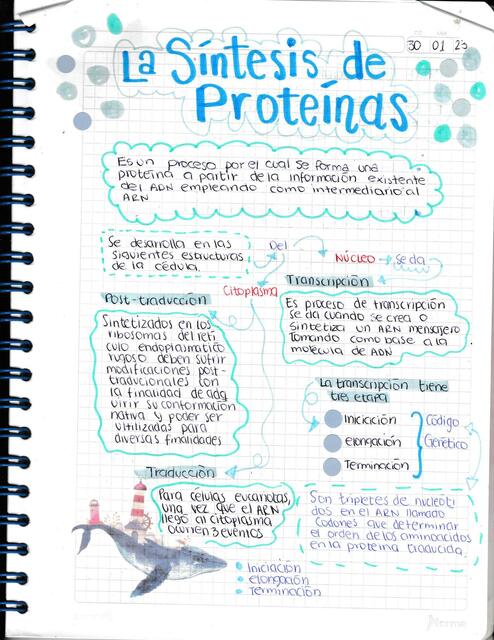 30 01 23
La Síntesis de
Proteínas
Es un proceso por el cual se forma una
proteína a partir de la información existente
del ADN empleando como intermediario al
ARN
Se desarrolla en las
siguientes estructuras
de la cédula.
Del
Núcleo
Se da
Citoplasma
Transcripción
Es proceso de transcripción
se da cuando se crea o
sintetiza un ARN mensajero
Tomando como base a la
molecula de ADN
Post-traducción
Sintetizados en los
ribosomas del retí
culo endoplasmatico
rugoso deben sufrir
modificaciones post-
traducionales con
la finalidad de adq
uirir su conformación
nativa y poder ser
utilizadas para
diversas finalidades
La transcripción tiene
tres etapa
Iniciación
elongación
Terminación
Código
Genético
Traducción
Para células eucariotas,
una vez que el ARN
llegó al citoplasma
ocurren 3 eventos
Iniciación
elongación
Terminación
Son tripletes de nucleóti
dos en el ARN llamado
codones que determinar
el orden de los aminoacidos
en la proteína traducida.
Norma